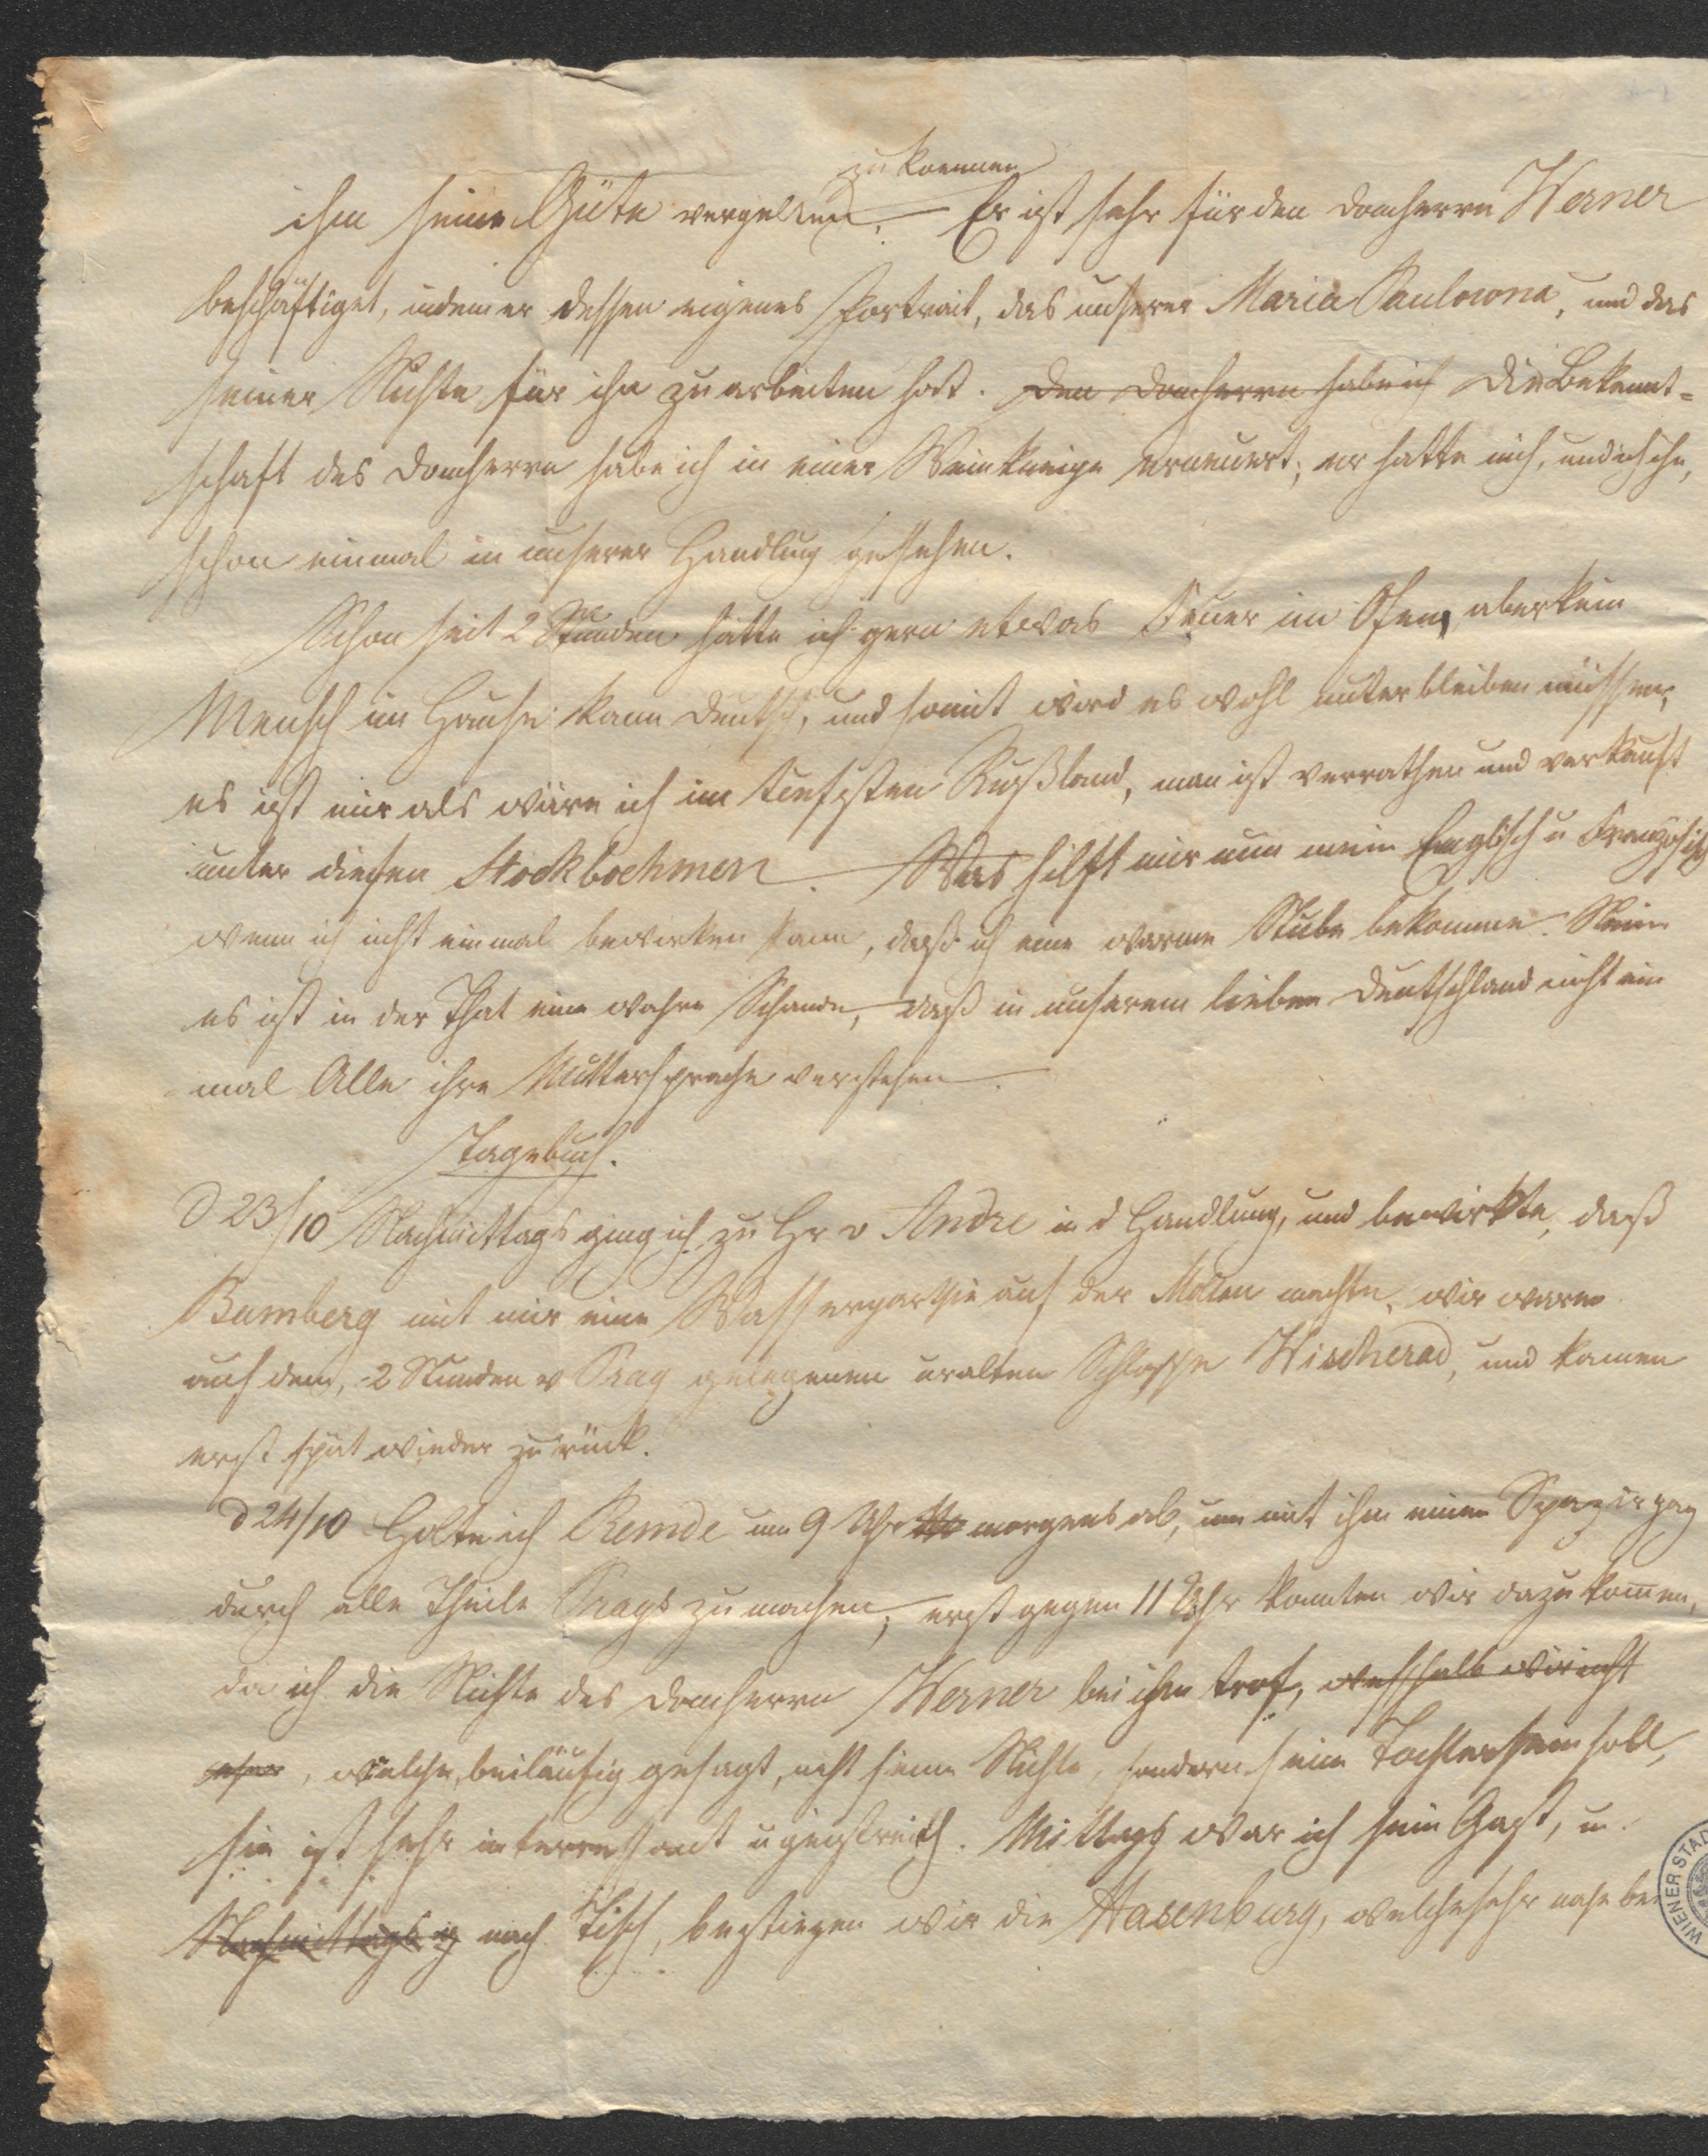 zu koennen
ihm seine Güte vergelten. — Er ist sehr für den Domherrn Werner
beschäftiget, indem er dessen eigenes Portrait, das unserer Maria Paulowna, und das
seiner Nichte für ihn zu arbeiten hat. Den Domherrn habe ich Die Bekannt-
schaft des Domherrn habe ich in einer Weinkneipe erneuert; er hatte mich, und ich ihn,
schon einmal in unserer Handlung gesehen.
Schon seit 2 Stunden hätte ich gern etwas Feuer im Ofen, aber kein
Mensch im Hause kann deutsch, und somit wird es wohl unterbleiben müssen,
es ist mir als wäre ich im tiefsten Rußland, man ist verrathen und verkauft
unter diesen Stockboehmen. — Was hilft mir nun mein Englisch u Französisch
wenn ich nicht einmal bewirken kann, daß ich eine warme Stube bekomme. Nein
es ist in der That eine wahre Schande, daß in unserem lieben Deutschland nicht ein
mal Alle ihre Muttersprache verstehen.
Tagebuch.
D 23/10 Nachmittags ging ich zu Hr v Andre in d Handlung, und bewirkte, daß
Bamberg mit mir eine Wasserparthie auf der Moldau machte, wir waren
auf dem, 2 Stunden v Prag gelegenen uralten Schlosse Wischerad, und kamen
erst spät wieder zurück.
d 24/10 Holte ich Remde um 9 Uhr morgens ab, um mit ihm einen Spazirgang
durch alle Theile Prags zu machen, erst gegen 11 Uhr konnten wir dazu kommen,
da ich die Nichte des Domherrn Werner bei ihm traf, weshalb wir nicht
eher, welche, beiläufig gesagt, nicht seine Nichte, sondern seine Tochter sein soll,
sie ist sehr interressant u geistreich. Mittags war ich sein Gast, u.
Nachmittags g nach Tisch, bestiegen wir die Hasenburg, welche sehr nahe bei
WIENER STAD